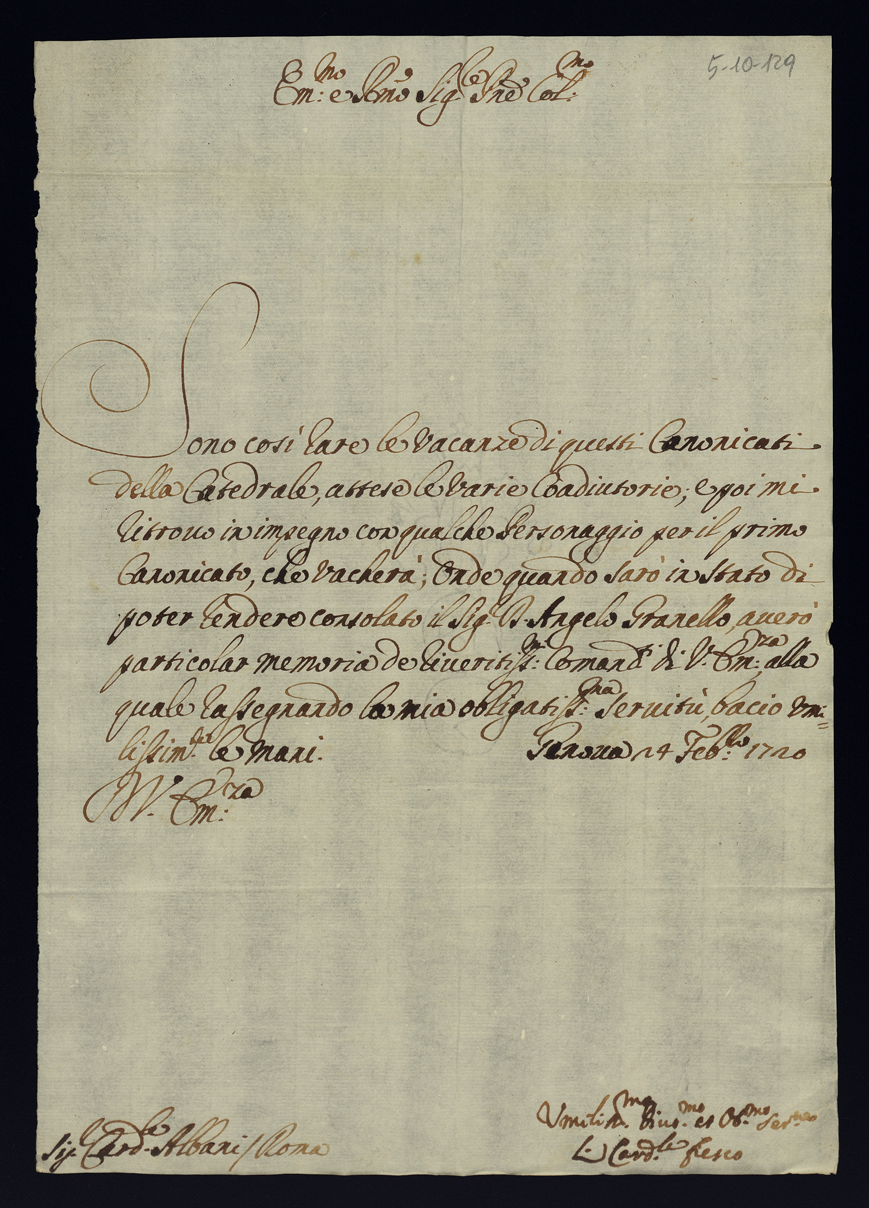 5-10-129
Em:mo e Rmo Sigle Pne Col:mo
Sono così rare le vacanze di questi Canonicati
della Catedrale, attese le varie Coadiutorie; e poi mi
ritrouo in impegno con qualche Personaggio per il primo
Canonicato, che vacherà; Onde quando sarò in stato di
poter rendere consolato il Sigr D. Angelo Granello, auerò
particolar memoria de riueritiss:mi Comandi di V. Em:za, alla
quale rassegnando la mia obligatiss:ma seruitù, bacio vmi=
lissim.te le mani. Genoua 24 Febb:llo 1720
D V. Em:za
Sig. Card.le Albani / Roma
Vmiliss.mo Diuo.mo et Ob.mo Ser.re
L. Card.le fiesco